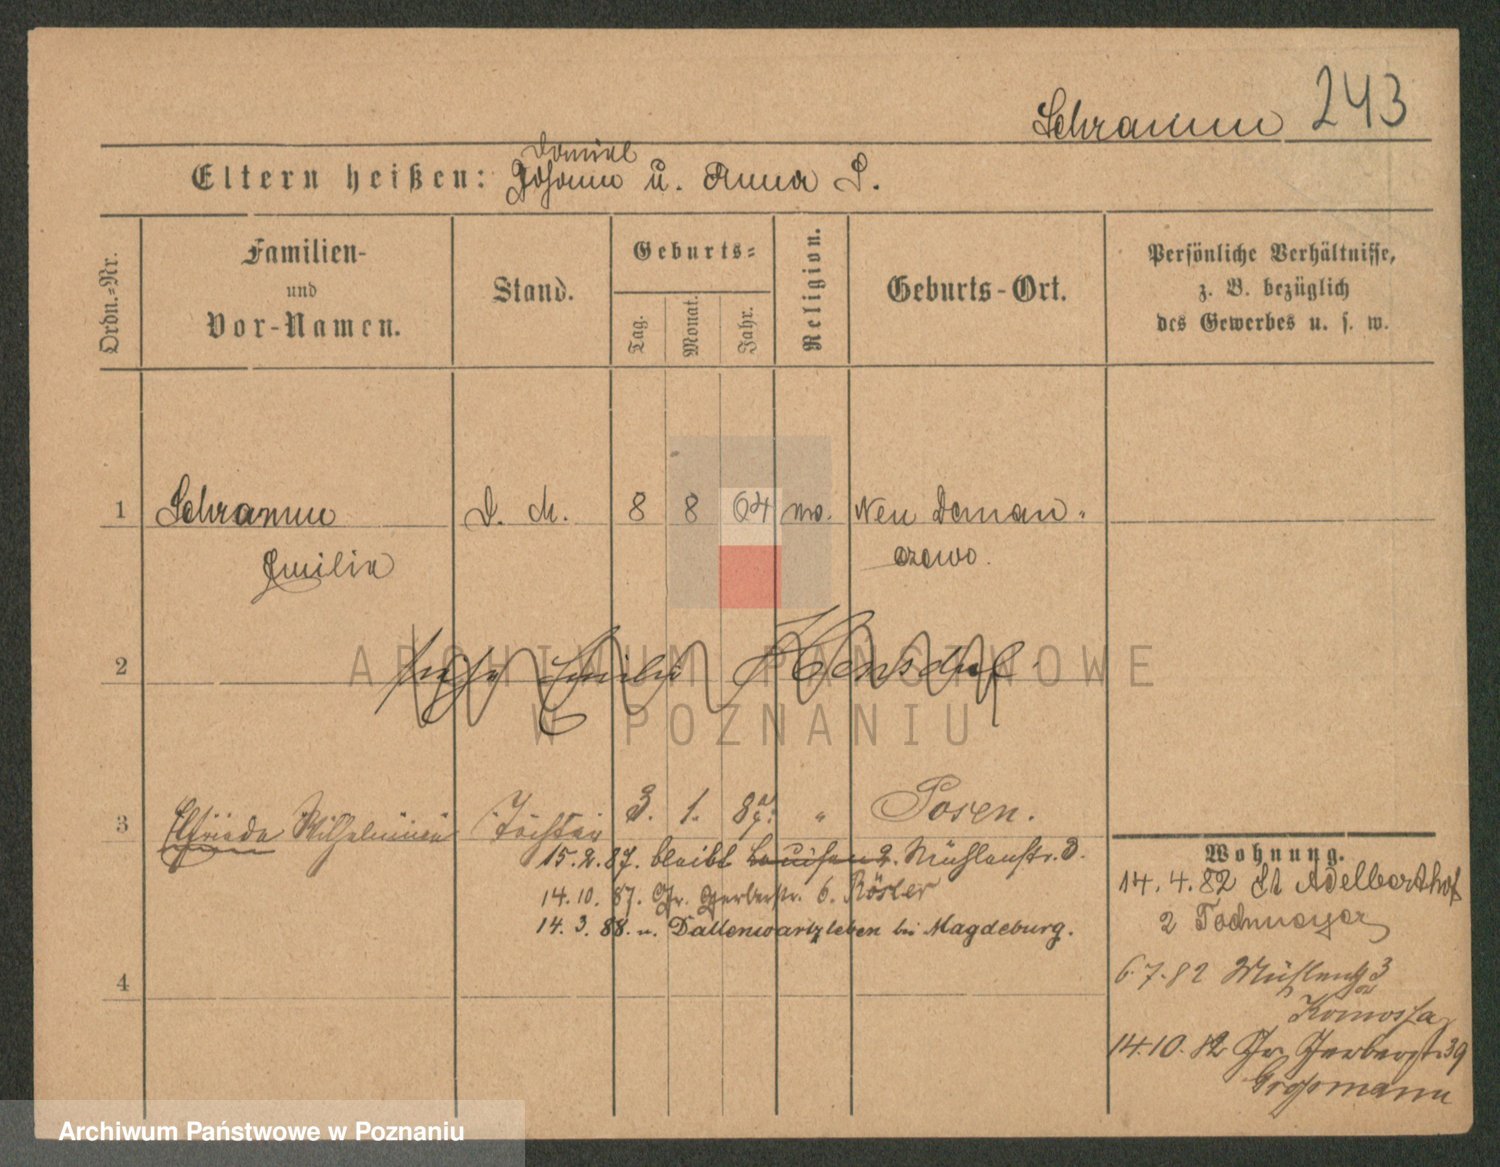 Schramm 243
Daniel
Eltern heißen: Johann u. Anna S.
Ordn.-Nr.
Familien-
und
Vor-Namen.
Stand.
Geburts-
Tag.
Monat.
Jahr.
Religion.
Geburts-Ort.
Persönliche Verhältnisse,
z. B. bezüglich
des Gewerbes u. s. w.
1 Schramm D. M. 8 8 64 Neu Doman-
Emilie czewo.
ARCHIWUM PAŃSTWOWE
W POZNANIU
2 siehe Emilie
3 Elfriede Wilhelmine Tochter 3. 1. 87. " Posen.
15.2.87. bleibt Louisen 2. Mühlenstr. 3.
14.10.87. Gr. Gerberstr. 6. Rösler
14.3.88. n. Dallenwartzleben bei Magdeburg.
4
Wohnung.
14.4.82 St Adelberthof
2 Todmeyer
6.7.82 Mühlenstr 3
Komossa
14.10.82 Gr. Gerberstr 39
Großmann
Archiwum Państwowe w Poznaniu